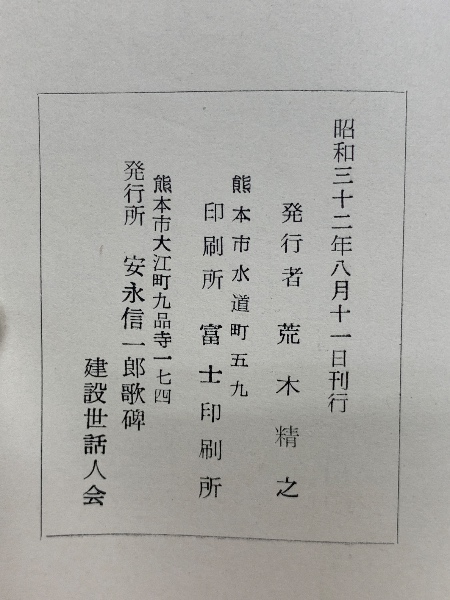 昭和三十二年八月十一日刊行
発行者 荒木精之
熊本市水道町五九
印刷所 富士印刷所
熊本市大江町九品寺一七四
発行所 安永信一郎歌碑
建設世話人会